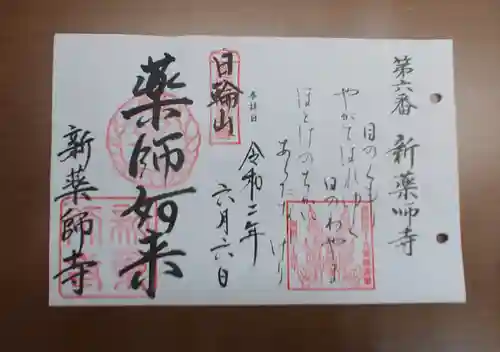 第六番 新薬師寺
目のくも
やがてはれゆく
日のわやま
ほとけのちかい
あらたなりけり
奉拝日
日輪山
令和二年
六月六日
薬師如来
新薬師寺